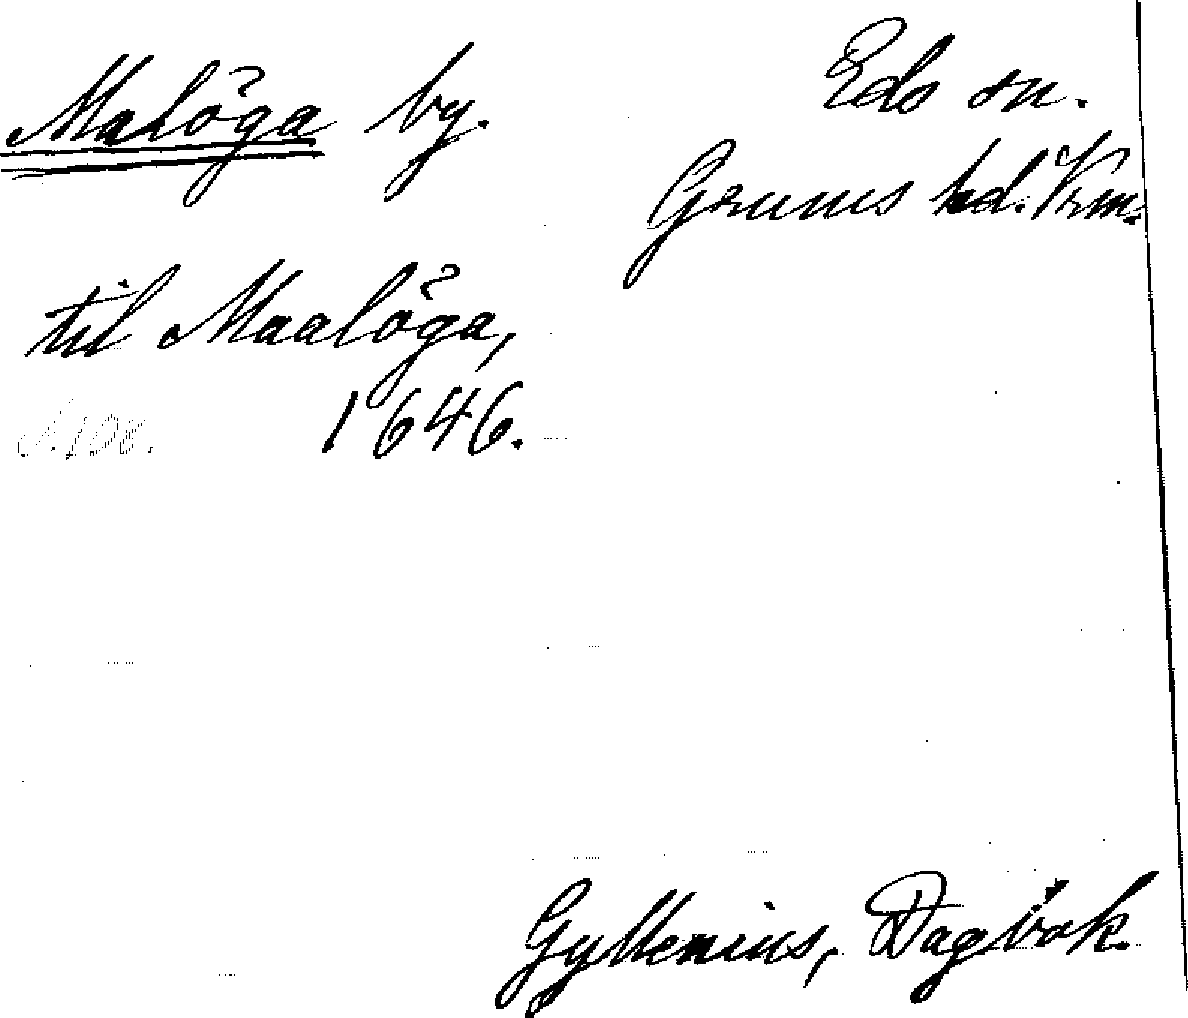 Malöga by.
Eds sn.
Grums hd. Vrm.
til Maalöga,
1646.
Gyllenius, Dagbok.